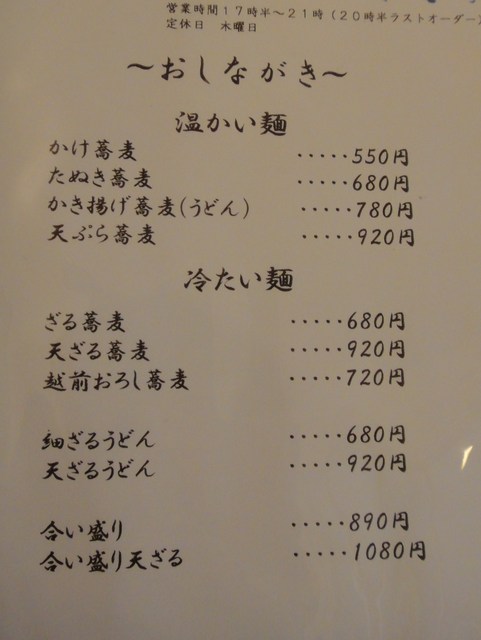 営業時間17時半～21時(20時半ラストオーダー)
定休日 木曜日
～おしながき～
温かい麺
かけ蕎麦 ・・・・・550円
たぬき蕎麦 ・・・・・680円
かき揚げ蕎麦(うどん) ・・・・・780円
天ぷら蕎麦 ・・・・・920円
冷たい麺
ざる蕎麦 ・・・・・680円
天ざる蕎麦 ・・・・・920円
越前おろし蕎麦 ・・・・・720円
細ざるうどん ・・・・・680円
天ざるうどん ・・・・・920円
合い盛り ・・・・・890円
合い盛り天ざる ・・・・・1080円